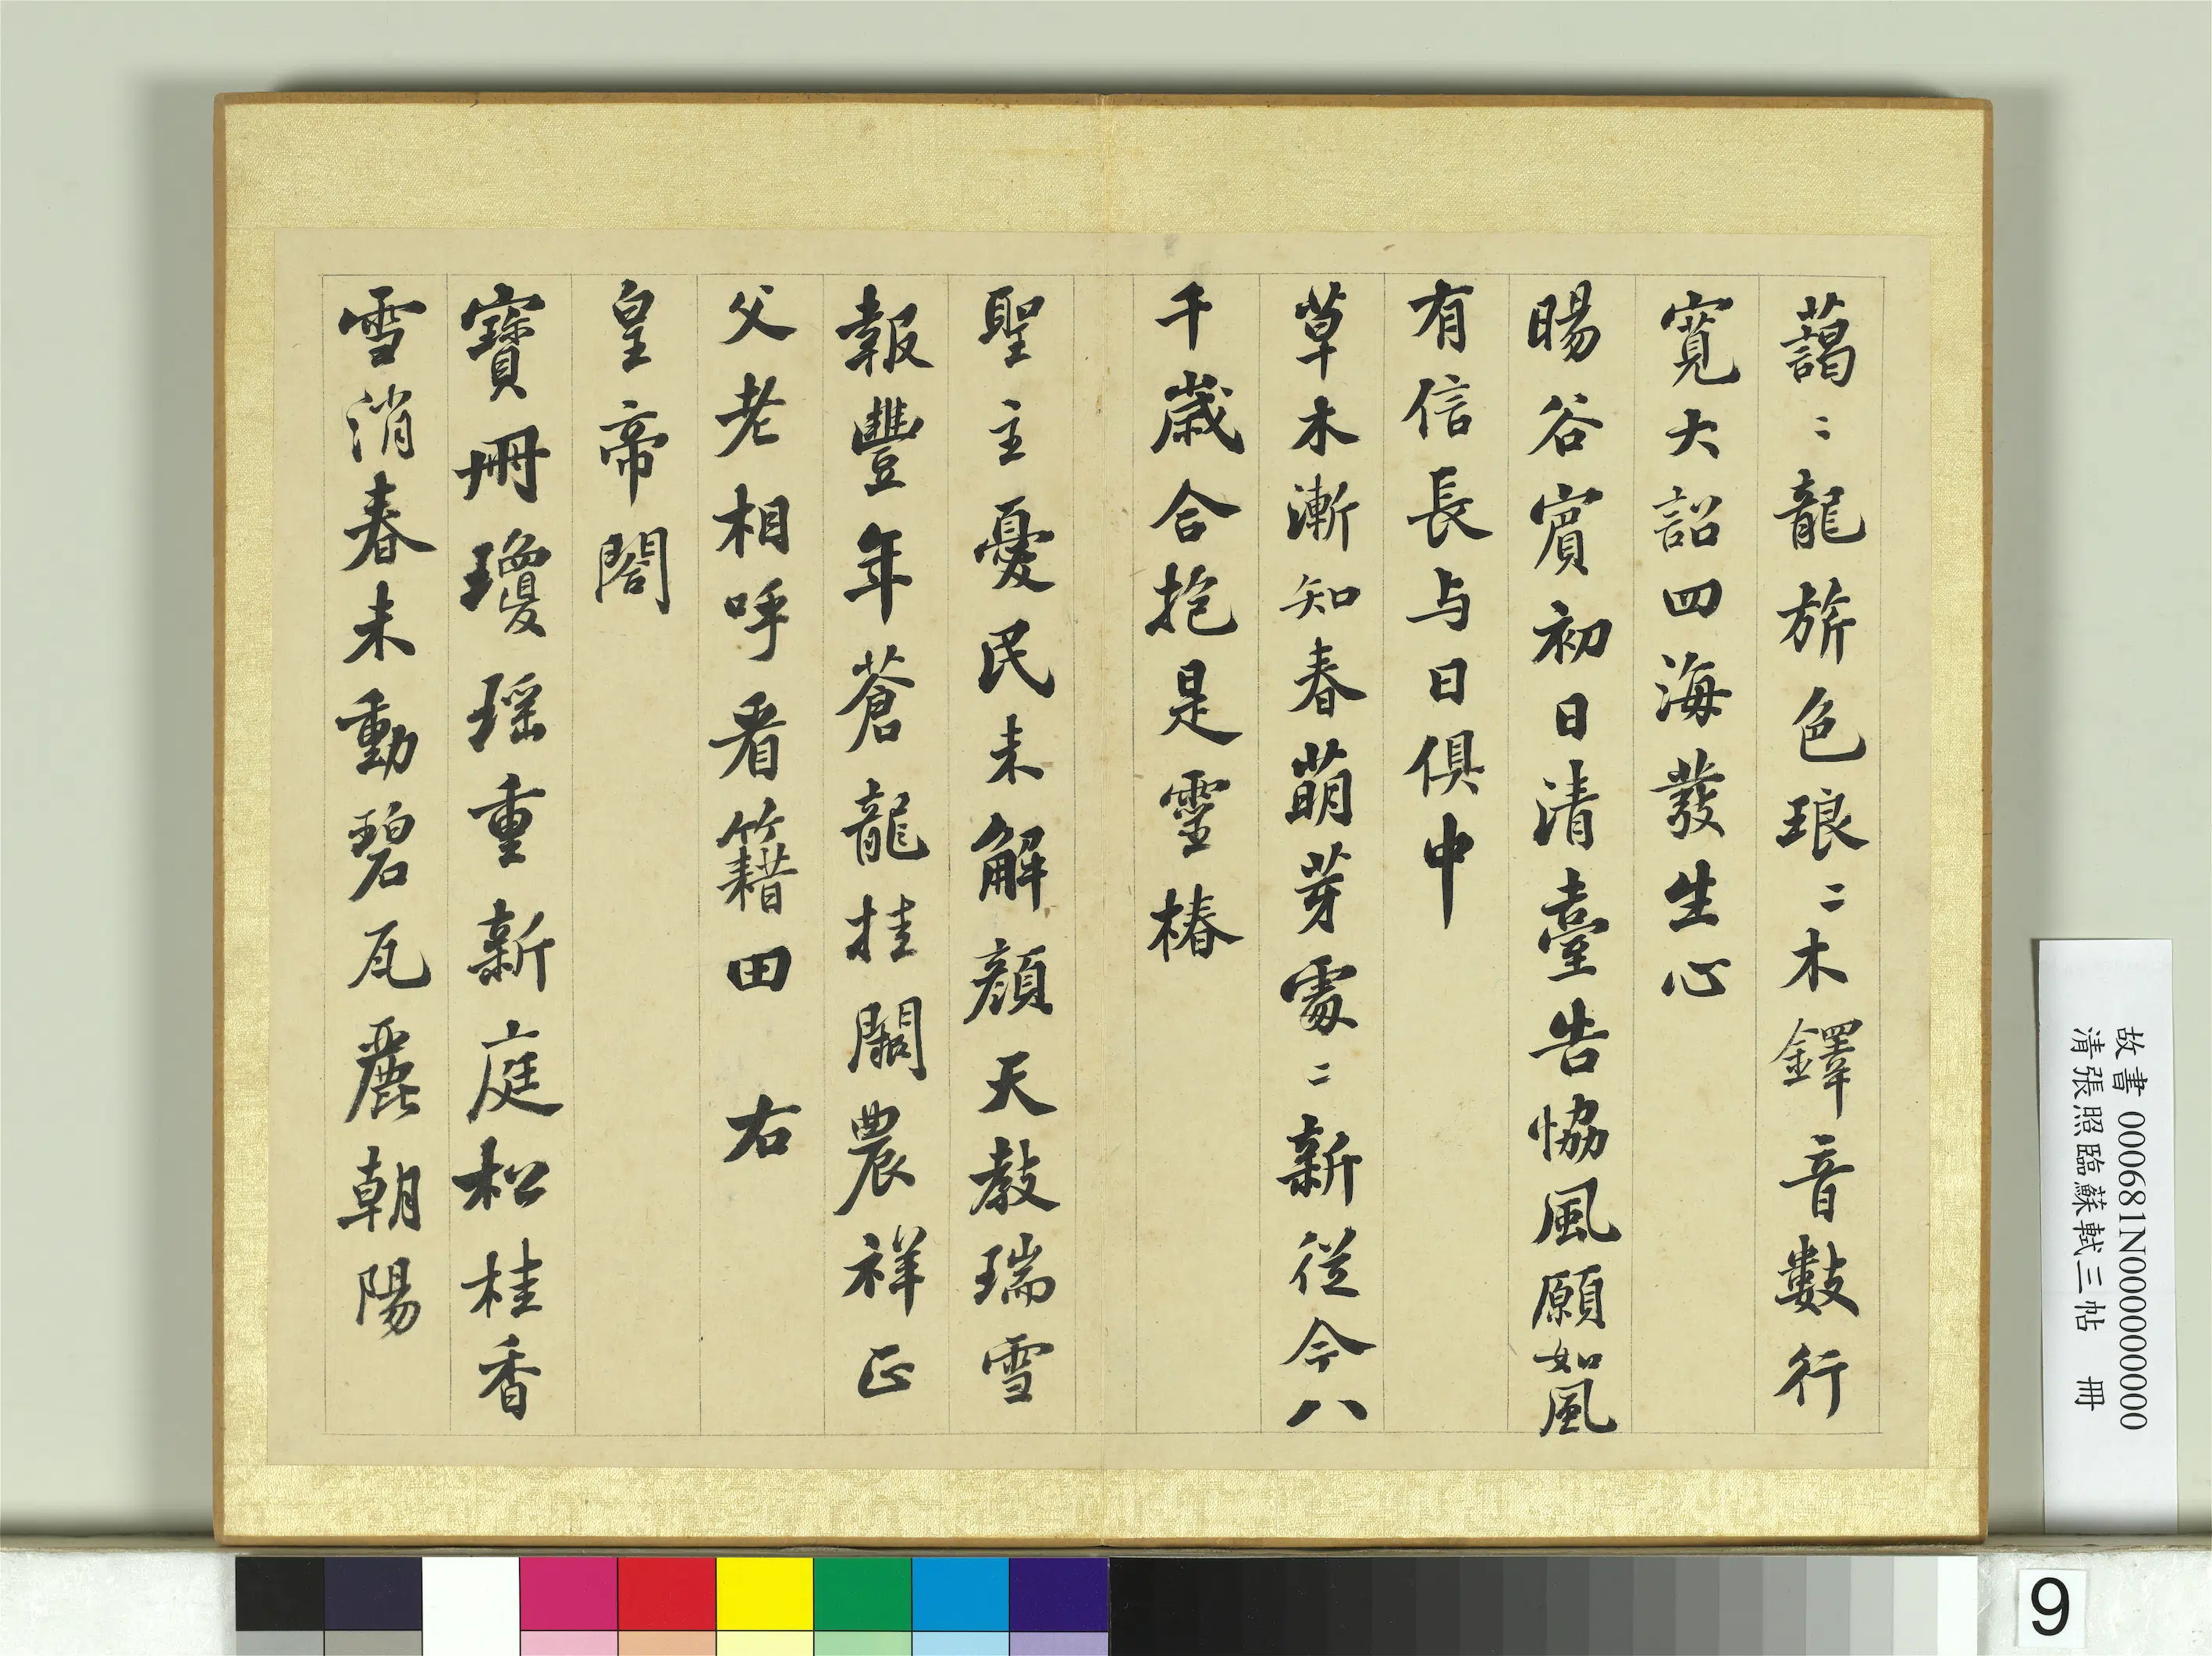 藹〻龍旂色琅〻木鐸音數行
寬大詔四海發生心
暘谷賔初日清臺告恊風願如風
有信長与日俱中
草木漸知春萌芽處〻新從今八
千歲合抱是靈椿
聖主憂民未解顏天教瑞雪
報豐年蒼龍挂闕農祥正
父老相呼看籍田 右
皇帝閤
寶冊瓊瑶重新庭松桂香
雪消春未動碧瓦麗朝陽
故書 000681N000000000
清張照臨蘇軾三帖 冊
9